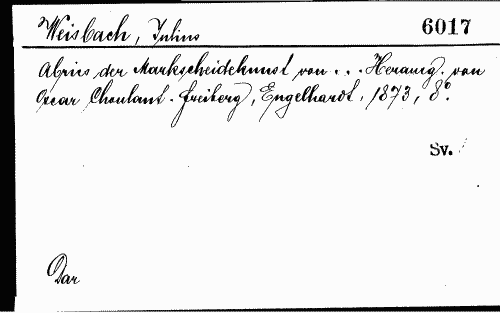 Weisbach, Julius 6017
Abriss der Markscheidekunst von . . . Herausg. von
Oscar Choulant. Freiberg, Engelhardt, 1873, 8°.
Sv.
Dar